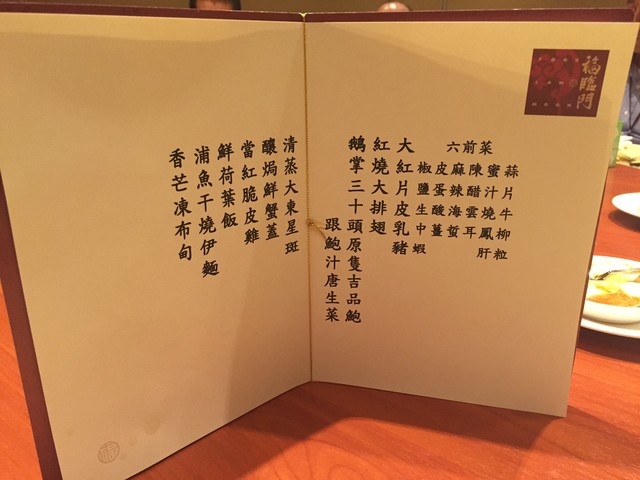 福臨門
六前菜
蒜片牛柳粒
蜜汁燒鳳肝
陳醋雲耳
麻辣海蜇
皮蛋酸薑
椒鹽生中蝦
大紅片皮乳豬
紅燒大排翅
鵝掌三十頭原隻吉品鮑
跟鮑汁唐生菜
清蒸大東星斑
釀焗鮮蟹蓋
當紅脆皮雞
鮮荷葉飯
浦魚干燒伊麵
香芒凍布甸